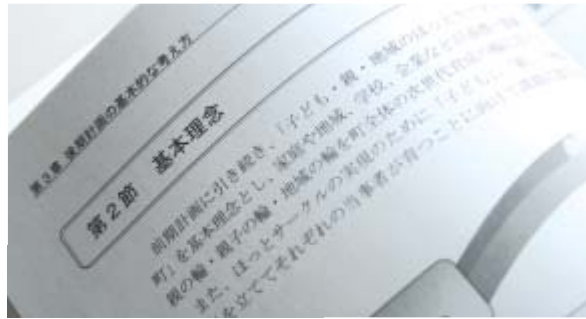 第3章 後期計画の基本的な考え方
第2節 基本理念
前期計画に引き続き、「子ども・親・地域のほっとサ
町」を基本理念とし、家庭や地域、学校、企業など
親の輪・親子の輪・地域の輪を町全体の次世代育成の輪
また、ほっとサークルの実現のために「子ども」、「親」
を立ててそれぞれの当事者が育つことに向けて